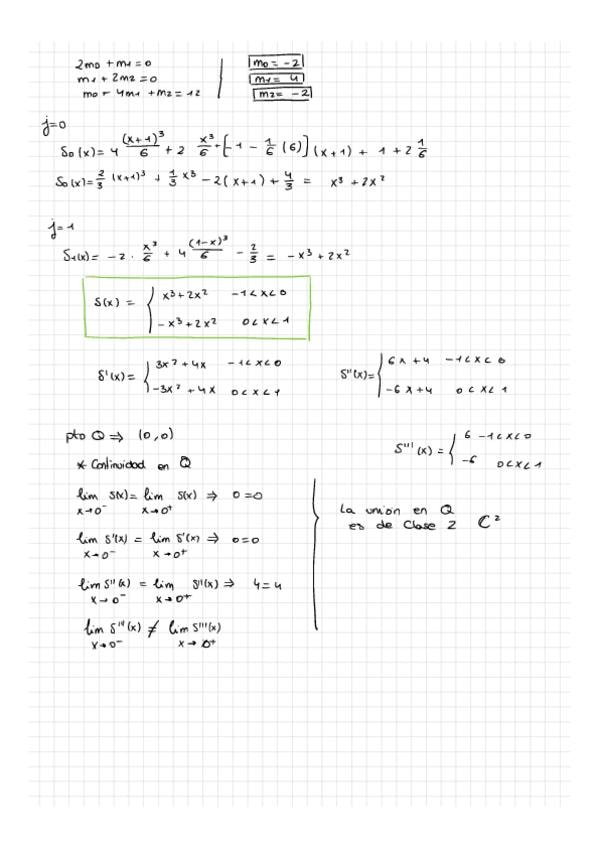 2m0 + m1 = 0
m1 + 2m2 = 0
m0 - 4m1 + m2 = 12
m0 = -2
m1 = 4
m2 = -2
j=0
S0(x) = 4 (x+1)³/6 + 2 x³/6 + [-1 - 1/6 (6)] (x+1) + 1 + 2 1/6
S0(x) = 2/3 (x+1)³ + 1/3 x³ - 2(x+1) + 4/3 = x³ + 2x²
j=1
S1(x) = -2 · x³/6 + 4 (1-x)³/6 - 2/3 = -x³ + 2x²
S(x) = { x³ + 2x² -1<x<0
-x³ + 2x² 0<x<1
S'(x) = { 3x² + 4x -1<x<0
-3x² + 4x 0<x<1
S''(x) = { 6x + 4 -1<x<0
-6x + 4 0<x<1
S'''(x) = { 6 -1<x<0
-6 0<x<1
pto Q ⇒ (0,0)
* Continuidad en Q
lim S(x) = lim S(x) ⇒ 0=0
x→0⁻ x→0⁺
lim S'(x) = lim S'(x) ⇒ 0=0
x→0⁻ x→0⁺
lim S''(x) = lim S''(x) ⇒ 4=4
x→0⁻ x→0⁺
lim S'''(x) ≠ lim S'''(x)
x→0⁻ x→0⁺
La union en Q
es de clase 2 C²